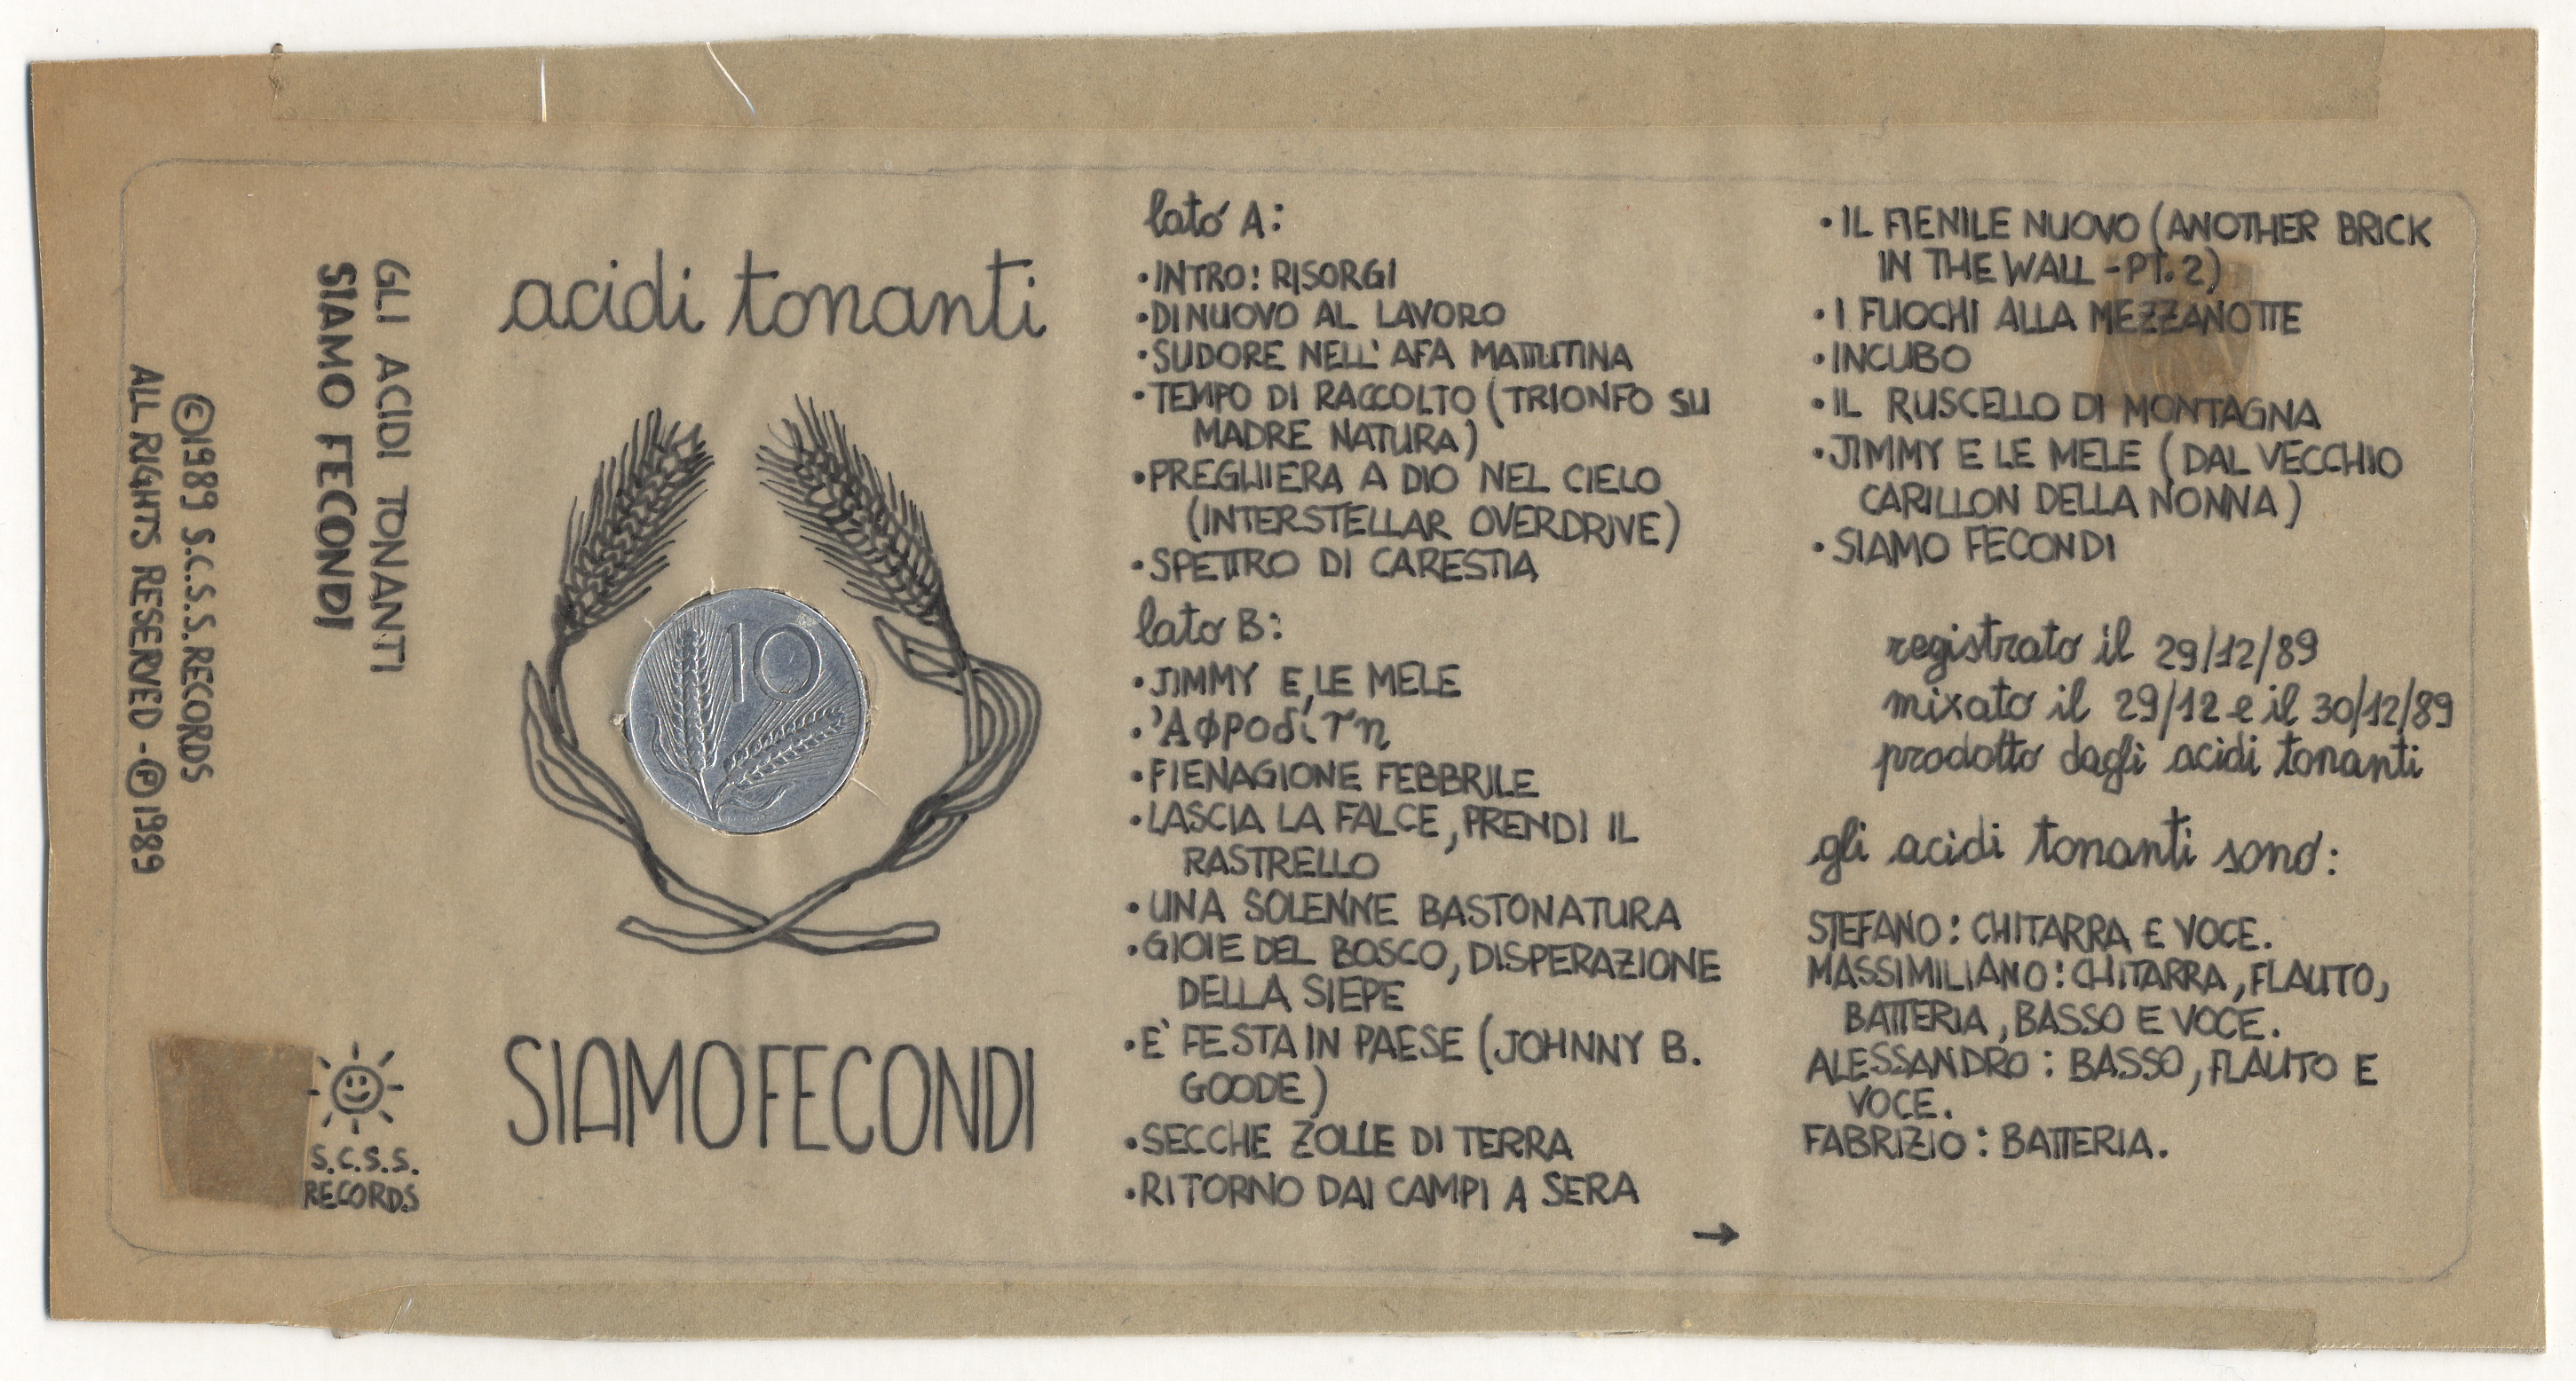 ©1989 S.C.S.S. RECORDS
ALL RIGHTS RESERVED - ℗1989
GLI ACIDI TONANTI
SIAMO FECONDI
S.C.S.S.
RECORDS
acidi tonanti
10
SIAMO FECONDI
lato A:
•INTRO: RISORGI
•DI NUOVO AL LAVORO
•SUDORE NELL' AFA MATTUTINA
•TEMPO DI RACCOLTO (TRIONFO SU
MADRE NATURA)
•PREGHIERA A DIO NEL CIELO
(INTERSTELLAR OVERDRIVE)
•SPETTRO DI CARESTIA
lato B:
•JIMMY E LE MELE
•Ἀφροδίτη
•FIENAGIONE FEBBRILE
•LASCIA LA FALCE, PRENDI IL
RASTRELLO
•UNA SOLENNE BASTONATURA
•GIOIE DEL BOSCO, DISPERAZIONE
DELLA SIEPE
•E' FESTA IN PAESE (JOHNNY B.
GOODE)
•SECCHE ZOLLE DI TERRA
•RITORNO DAI CAMPI A SERA
→
•IL FIENILE NUOVO (ANOTHER BRICK
IN THE WALL - PT. 2)
•I FUOCHI ALLA MEZZANOTTE
•INCUBO
•IL RUSCELLO DI MONTAGNA
•JIMMY E LE MELE (DAL VECCHIO
CARILLON DELLA NONNA)
•SIAMO FECONDI
registrato il 29/12/89
mixato il 29/12 e il 30/12/89
prodotto dagli acidi tonanti
gli acidi tonanti sono:
STEFANO: CHITARRA E VOCE.
MASSIMILIANO: CHITARRA, FLAUTO,
BATTERIA, BASSO E VOCE.
ALESSANDRO: BASSO, FLAUTO E
VOCE.
FABRIZIO: BATTERIA.